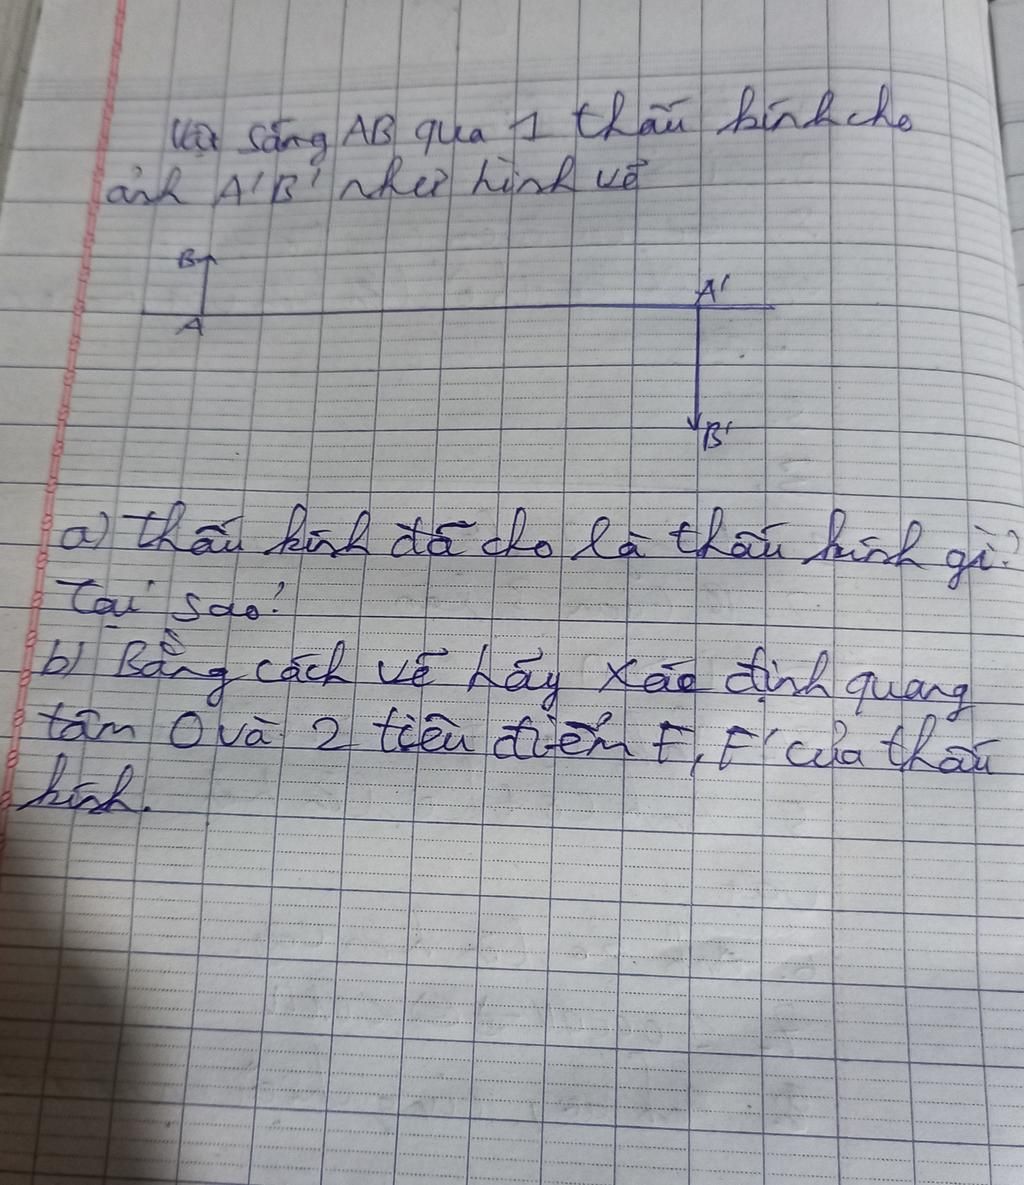 Vật sáng AB qua 1 thấu kính cho
ảnh A'B' như hình vẽ
B
A'
A
B'
a) thấu kính đã cho là thấu kính gì?
Tại sao?
b) Bằng cách vẽ hãy xác định quang
tâm O và 2 tiêu điểm F, F' của thấu
kính.